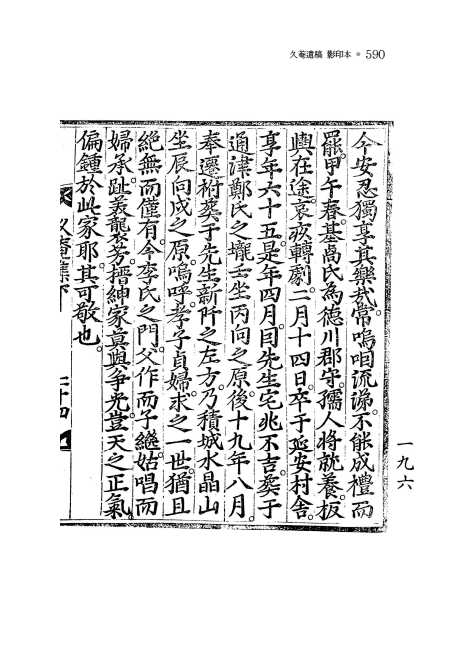 久菴遺稿 影印本 ● 590
今安忍獨享其樂哉常嗚咽流涕不能成禮而
罷甲午春基卨氏為德川郡守孺人將就養板
輿在途哀疚轉劇二月十四日卒于延安村舍
享年六十五是年四月因先生宅兆不吉葬于
通津鄭氏之壠壬坐丙向之原後十九年八月
奉遷祔葬于先生新阡之左方乃積城水晶山
坐辰向戌之原嗚呼孝子貞婦求之一世猶且
絶無而僅有今李氏之門父作而子繼姑唱而
婦承趾義龍芬芳搢紳家莫與爭光豈天之正氣
偏鍾於此家耶其可敬也
久菴集下
二十四
一九六